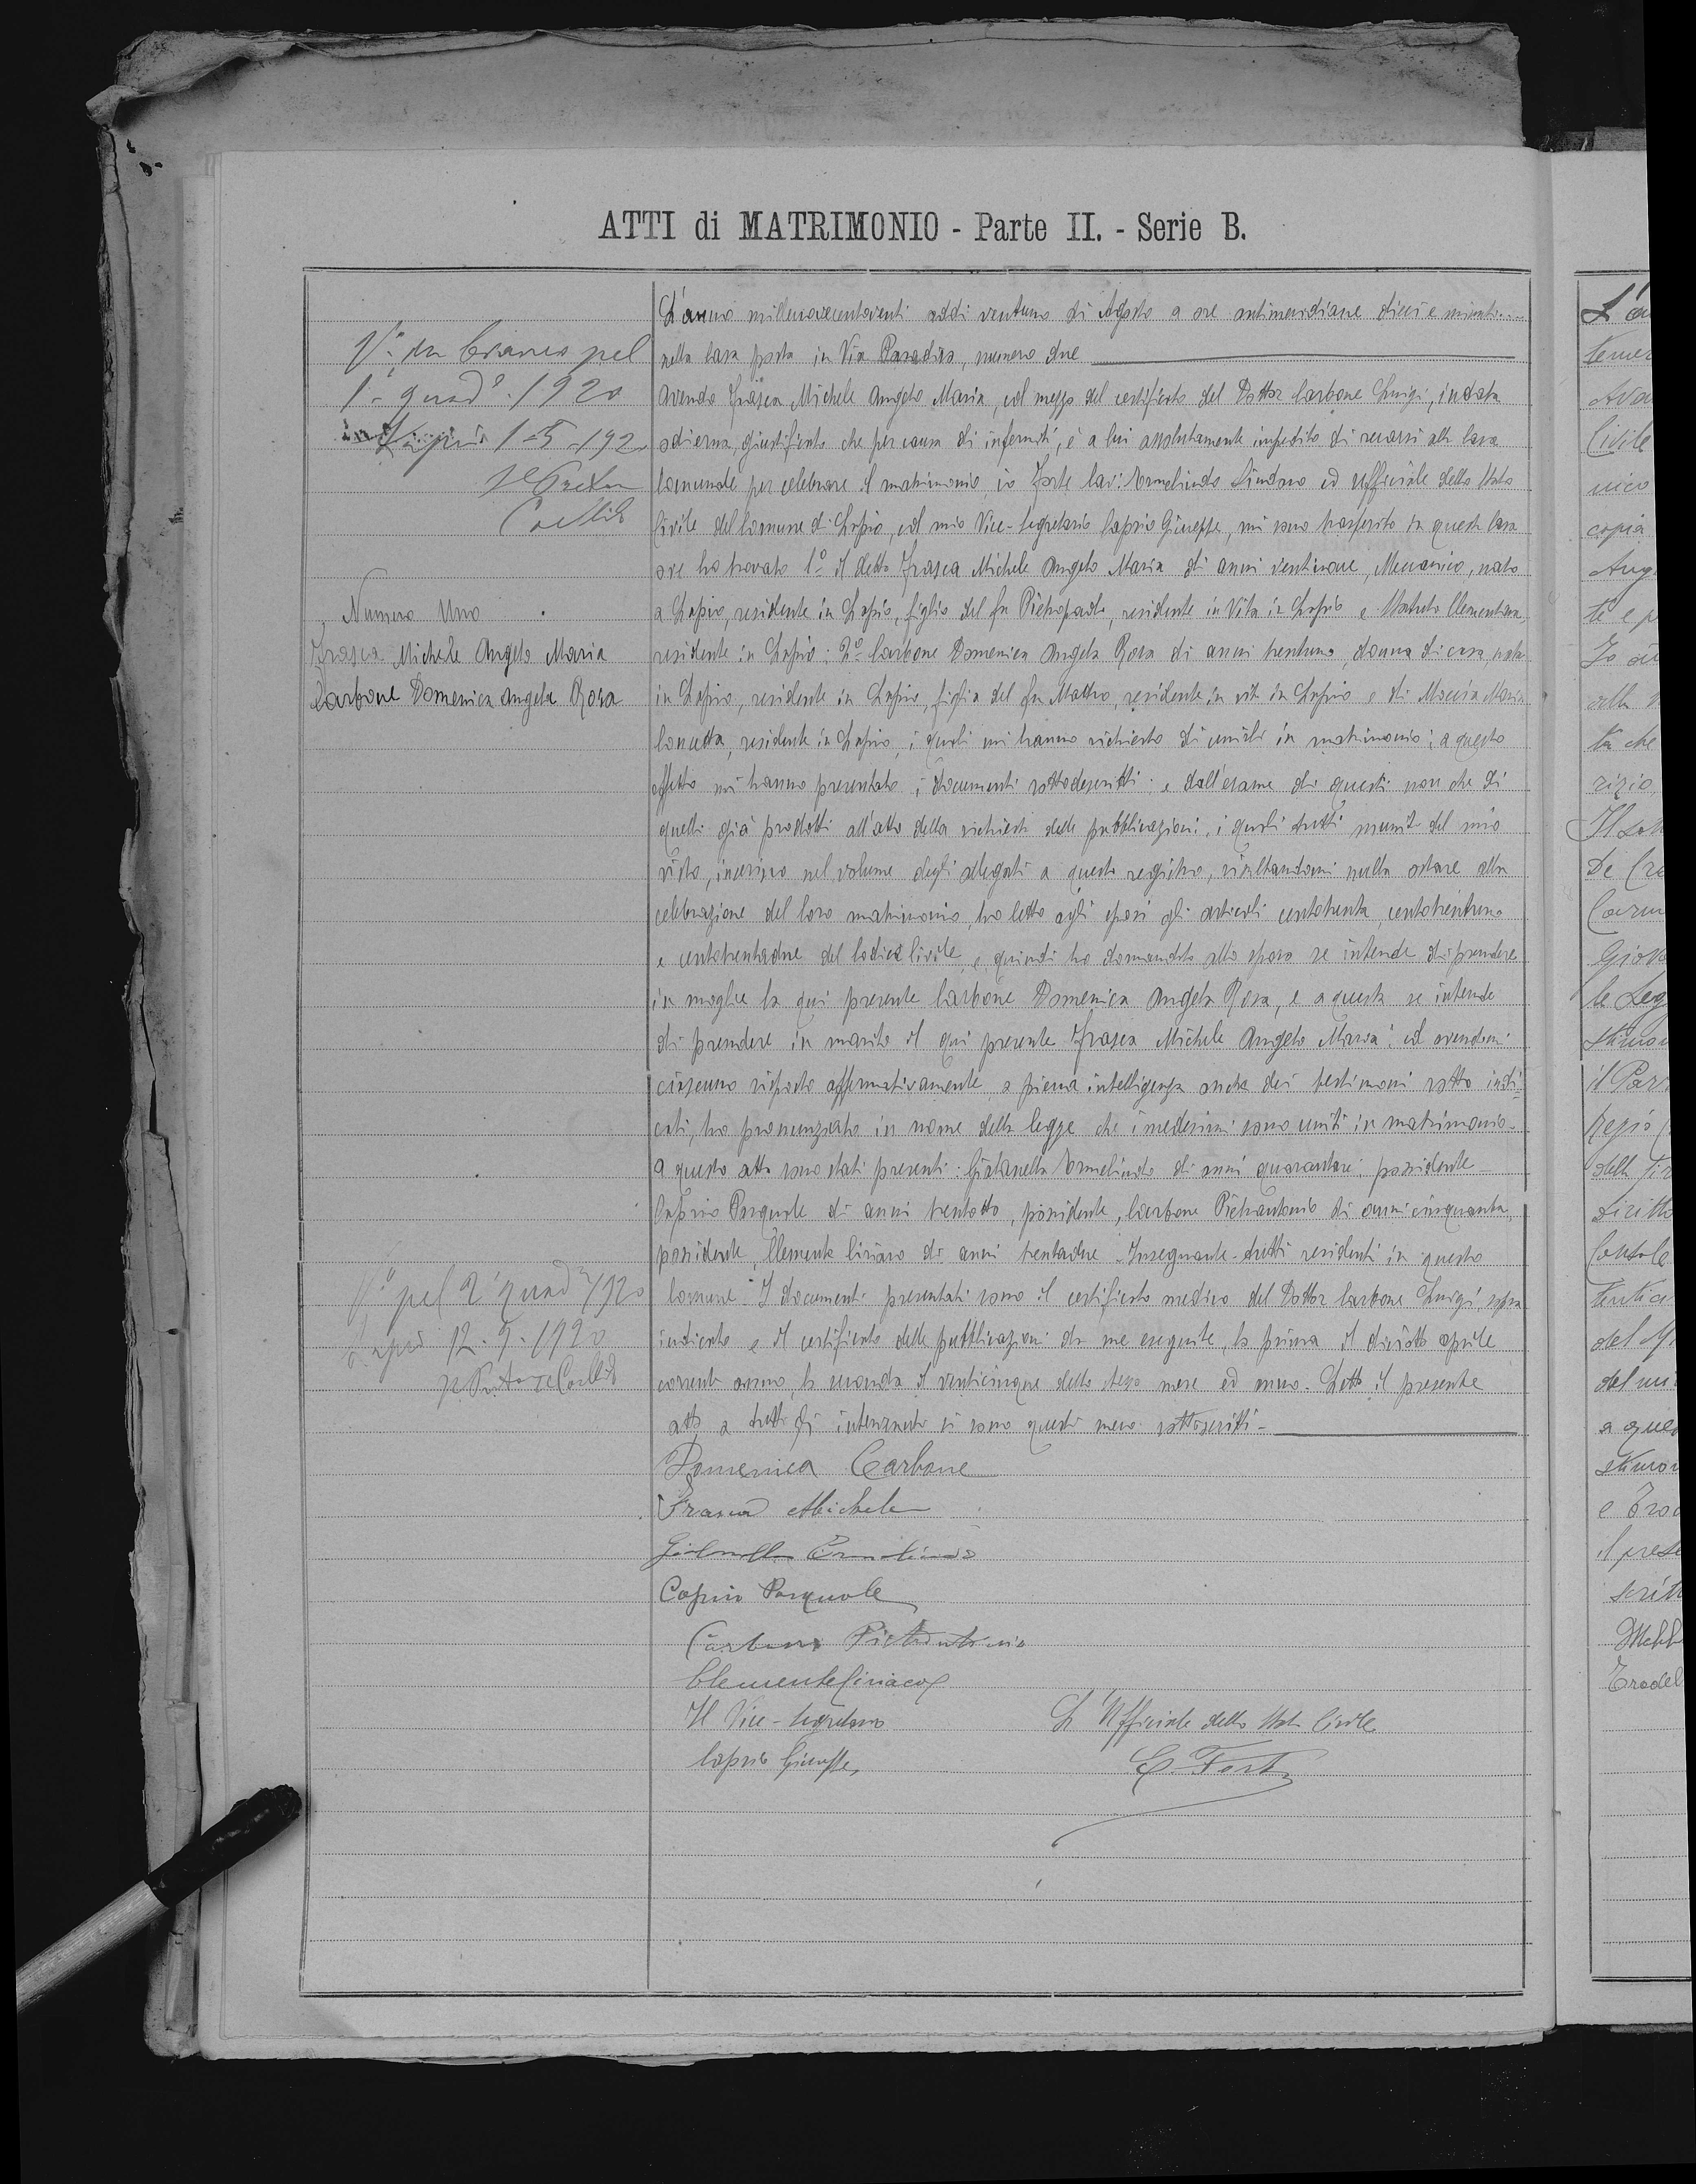 ATTI di MATRIMONIO - Parte II. - Serie B.
V.o in bianco pel
1.o quad.o 1920
Lapio 1-5-192
Il Pretore
Numero Uno
Frasca Michele Angelo Maria
Carbone Domenica Angela Rosa
V.o pel 2.o quad.e 1920
Lapio 12-9-1920
Il Pretore
L'anno millenovecentoventi addi ventuno di Agosto a ore antimeridiane dieci e minuti
nella Casa posta in Via Paradiso, numero due
Avendo Frasca Michele Angelo Maria, col mezzo del certificato del Dottor Carbone Luigi, in data
odierna, giustificato che per causa di infermità, è a lui assolutamente impedito di recarsi alla Casa
Comunale per celebrare il matrimonio, io Forte Cav: Ermelindo Sindaco ed Ufficiale dello Stato
Civile del Comune di Lapio, col mio Vice-Segretario Caprio Giuseppe, mi sono trasferito in questa Casa
ove ho trovato 1o il detto Frasca Michele Angelo Maria di anni ventinove, Meccanico, nato
a Lapio, residente in Lapio, figlio del fu Pietropaolo, residente in Vita in Lapio e Clementina
residente in Lapio; 2o Carbone Domenica Angela Rosa di anni trentuno, donna di casa, nata
in Lapio, residente in Lapio, figlia del fu Matteo, residente in vita in Lapio e di Maria
Concetta, residente in Lapio, i quali mi hanno richiesto di unirli in matrimonio; a questo
effetto mi hanno presentato i documenti sottodescritti; e dall'esame di questi non che di
quelli già prodotti all'atto della richiesta delle pubblicazioni, i quali tutti muniti del mio
visto, inserisco nel volume degli allegati a questo registro, risultandomi nulla ostare alla
celebrazione del loro matrimonio, ho letto agli sposi gli articoli centotrenta, centotrentuno
e centotrentadue del Codice Civile, e quindi ho domandato allo sposo se intende di prendere
in moglie la qui presente Carbone Domenica Angela Rosa, e a questa se intende
di prendere in marito il qui presente Frasca Michele Angelo Maria; ed avendomi
ciascuno risposto affermativamente, a piena intelligenza anche dei testimoni sotto indi-
cati, ho pronunziato in nome della legge che i medesimi sono uniti in matrimonio.
A questo atto sono stati presenti: Ermelindo di anni possidente
Caprio Pasquale di anni trentotto, possidente, Carbone Pietrantonio di anni cinquanta,
possidente, Clemente Ciriaco di anni trentadue - Insegnante - tutti residenti in questo
Comune. I documenti presentati sono il certificato medico del Dottor Carbone Luigi, sopra
indicato e il certificato delle pubblicazioni da me eseguite, la prima il diciotto aprile
corrente anno, la seconda il venticinque dello stesso mese ed anno. Letto il presente
atto a tutti gli intervenuti si sono questi meco sottoscritti -
Domenica Carbone
Frasca Michele
Caprio Pasquale
Carbone Pietrantonio
Clemente Ciriaco
Il Vice-Segretario L'Ufficiale dello Stato Civile
Caprio Giuseppe E. Forte